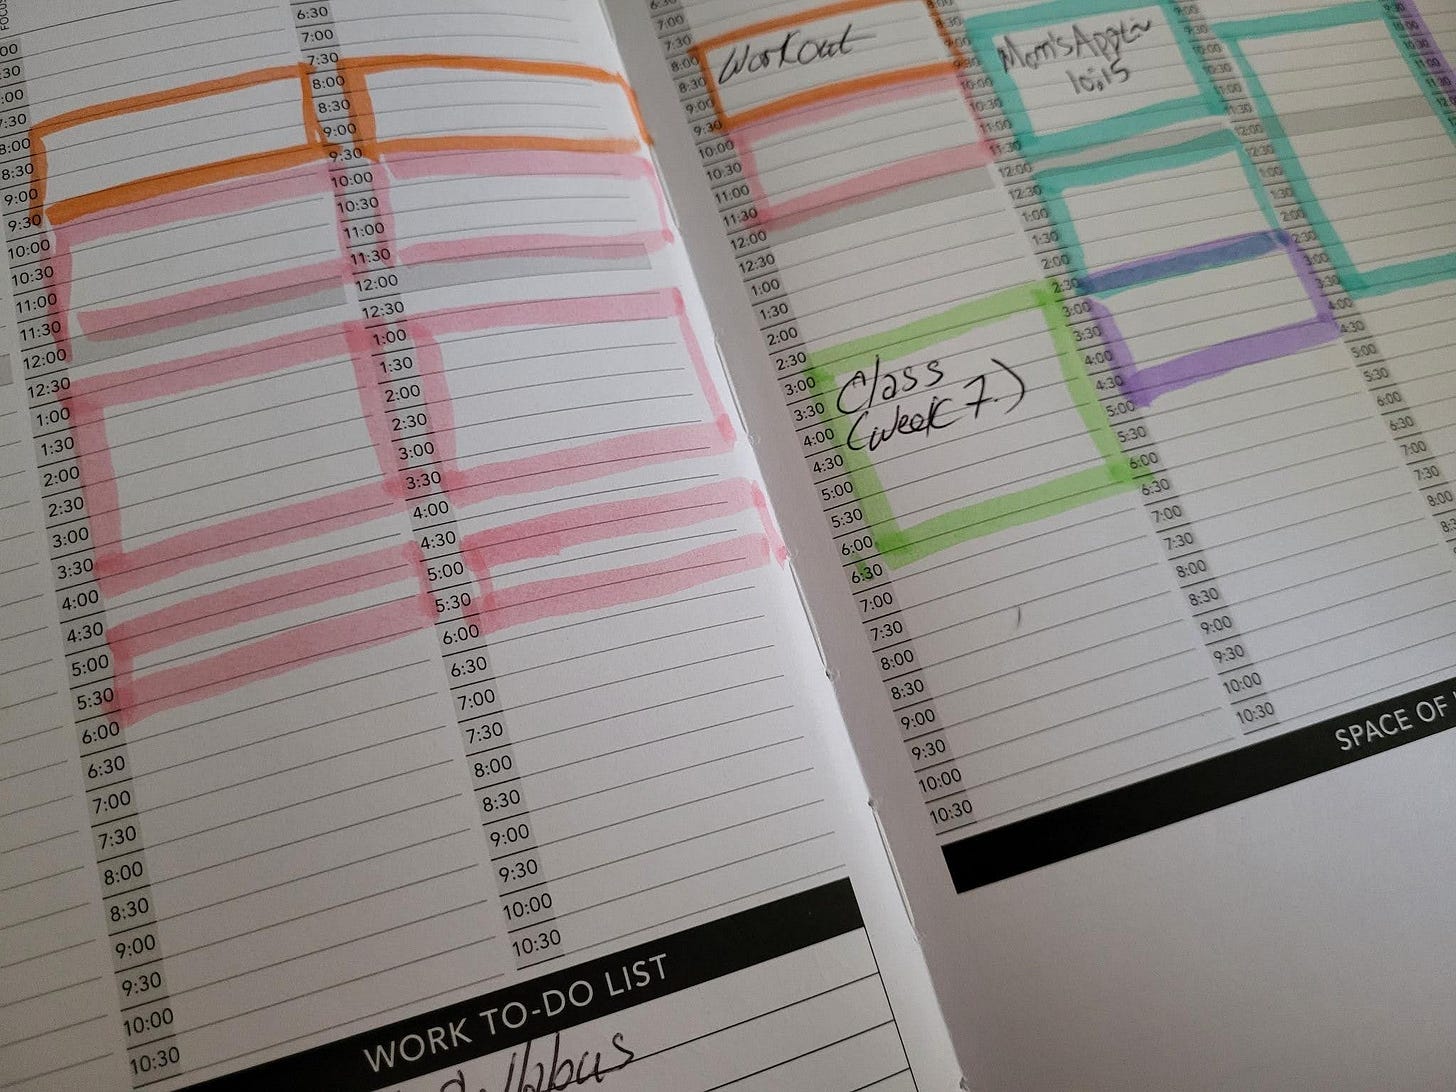 8:00
8:30
9:00
9:30
10:00
10:30
11:00
11:30
12:00
12:30
1:00
1:30
2:00
2:30
3:00
3:30
4:00
4:30
5:00
5:30
6:00
6:30
7:00
7:30
8:00
8:30
9:00
9:30
10:00
10:30
6:30
7:00
7:30
8:00
8:30
9:00
9:30
10:00
10:30
11:00
11:30
12:00
12:30
1:00
1:30
2:00
2:30
3:00
3:30
4:00
4:30
5:00
5:30
6:00
6:30
7:00
7:30
8:00
8:30
9:00
9:30
10:00
10:30
WORK TO-DO LIST
7:00
7:30
8:00
8:30
9:00
9:30
10:00
10:30
11:00
11:30
12:00
12:30
1:00
1:30
2:00
2:30
3:00
3:30
4:00
4:30
5:00
5:30
6:00
6:30
7:00
7:30
8:00
8:30
9:00
9:30
10:00
10:30
Workout
Class
(week 7.)
8:30
9:00
9:30
10:00
10:30
11:00
11:30
12:00
12:30
1:00
1:30
2:00
2:30
3:00
3:30
4:00
4:30
5:00
5:30
6:00
6:30
7:00
7:30
8:00
8:30
9:00
9:30
10:00
10:30
Mom's
10:15
9:00
9:30
10:00
10:30
11:00
11:30
12:00
12:30
1:00
1:30
2:00
2:30
3:00
3:30
4:00
4:30
5:00
5:30
6:00
6:30
7:00
7:30
8:00
SPACE OF